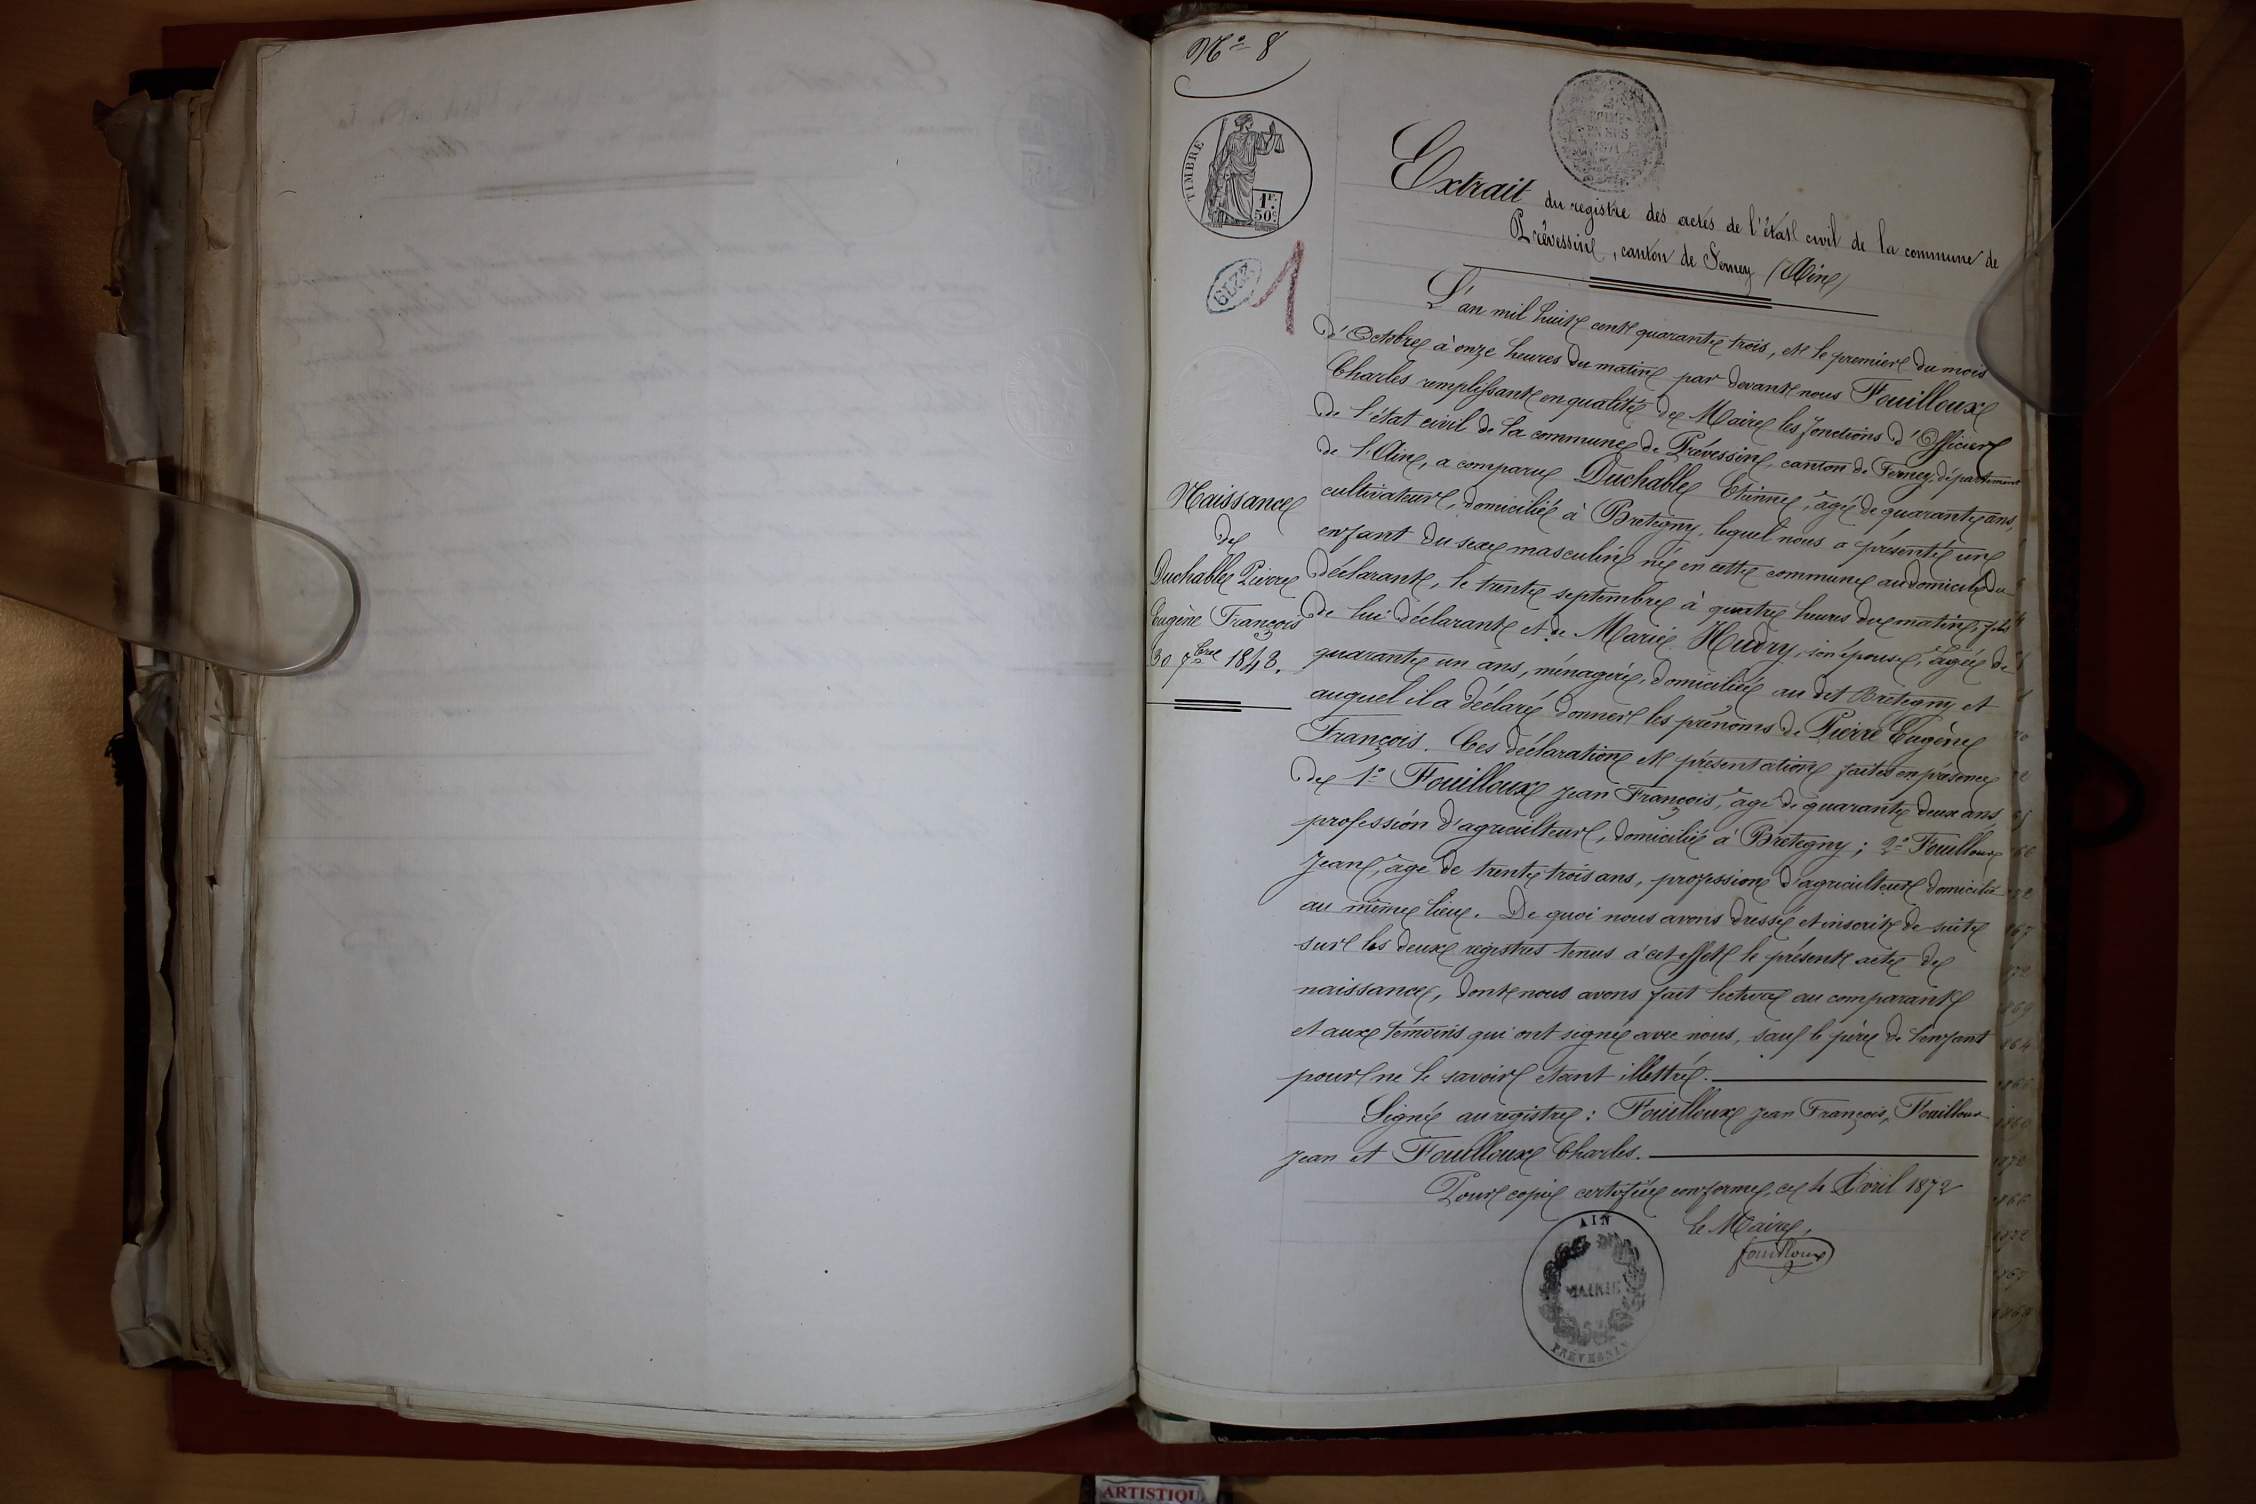 No 8
TIMBRE
1F.
50c
6122
Extrait du registre des actes de l'état civil de la commune de
Prévessin, canton de Ferney (Ain)
L'an mil huit cent quarante trois, et le premier du mois
d'Octobre à onze heures du matin par devant nous Fouilloux
Charles remplissant en qualité de Maire les fonctions d'Officier
de l'état civil de la commune de Prévessin, canton de Ferney, département
de l'Ain, a comparu Duchable Etienne, âgé de quarante ans,
cultivateur, domicilié à Bretigny, lequel nous a présenté un
enfant du sexe masculin né en cette commune au domicile du
déclarant, le trente septembre à quatre heures du matin, fils
de lui déclarant et de Marie Hudry, son épouse, âgée de
quarante un ans, ménagère, domiciliée au dit Bretigny et
auquel il a déclaré donner les prénoms de Pierre Eugène
François. Ces déclaration et présentation faites en présence
de 1o Fouilloux Jean François, âgé de quarante deux ans,
profession d'agriculteur, domicilié à Bretegny ; 2o Fouilloux
Jean, âgé de trente trois ans, profession d'agriculteur domicilié
au même lieu. De quoi nous avons dressé et inscrit de suite
sur les deux registres tenus à cet effet le présent acte de
naissance, dont nous avons fait lecture au comparant
et aux témoins qui ont signé avec nous, sauf le père de l'enfant
pour ne le savoir etant illettré.
Signé au registre : Fouilloux Jean François, Fouilloux
Jean et Fouilloux Charles.
Pour copie certifiée conforme, ce 4 Avril 1872
Le Maire,
Fouilloux
Naissance
de
Duchable Pierre
Eugène François
30 7bre 1843.
AIN
MAIRIE
PREVESSIN
ARTISTIQU